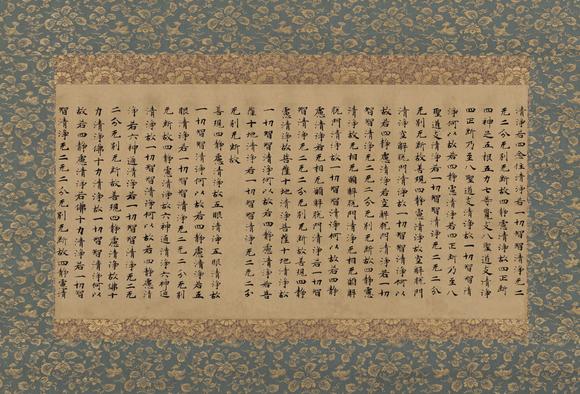 清淨若四念住清淨若一切智智清淨无二
无二分无別无斷故四靜慮清淨故四正斷
四神足五根五力七等覺支八聖道支清淨
四正斷乃至八聖道支清淨故一切智智清
淨何以故若四靜慮清淨若四正斷乃至八
聖道支清淨若一切智智清淨无二无二分
无別无斷故善現四靜慮清淨故空解脫門
清淨空解脫門清淨故一切智智清淨何以
故若四靜慮清淨若空解脫門清淨若一切
智智清淨无二无二分无別无斷故四靜慮
清淨故无相无願解脫門清淨无相无願解
脫門清淨故一切智智清淨何以故若四靜
慮清淨若无相无願解脫門清淨若一切智
智清淨无二无二分无別无斷故善現四靜
慮清淨故菩薩十地清淨菩薩十地清淨故
一切智智清淨何以故若四靜慮清淨若菩
薩十地清淨若一切智智清淨无二无二分
无別无斷故
善現四靜慮清淨故五眼清淨五眼清淨故
一切智智清淨何以故若四靜慮清淨若五
眼清淨若一切智智清淨无二无二分无別
无斷故四靜慮清淨故六神通清淨六神通
清淨故一切智智清淨何以故若四靜慮清
淨若六神通清淨若一切智智清淨无二无
二分无別无斷故善現四靜慮清淨故佛十
力清淨佛十力清淨故一切智智清淨何以
故若四靜慮清淨若佛十力清淨若一切智
智清淨无二无二分无別无斷故四靜慮清